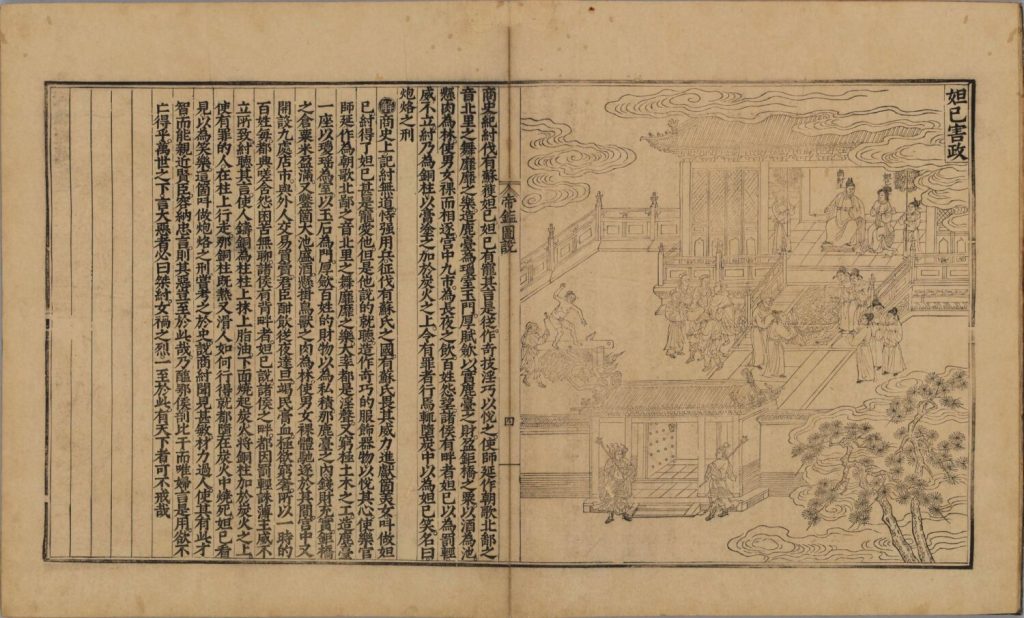 妲己害政
商史紀紂伐有蘇獲妲己妲己有寵其言是從作奇技淫巧以悅之使師延作朝歌北鄙之
音北里之舞靡靡之樂造鹿臺為瓊室玉門厚賦歛以實鹿臺之財盈鉅橋之粟以酒為池
懸肉為林使男女裸而相逐宮中九市為長夜之飲百姓怨望諸侯有畔者妲己以為罰輕
威不立紂乃為銅柱以膏塗之加於炭火之上令有罪者行焉輒墮炭中以為妲己笑名曰
炮烙之刑
帝鑑圖說
四
解商史上記紂無道恃强用兵征伐有蘇氏之國有蘇氏畏其威力進獻箇美女叫做妲
己紂得了妲己甚是寵愛他但是他說的就聽造作奇巧的服飾器物以悅其心使樂官
師延作為朝歌北鄙之音北里之舞靡靡之樂大率都是淫聲又窮極土木之工造鹿臺
一座以瓊瑤為室以玉石為門厚歛百姓的財物以為私積那鹿臺之內錢財充實鉅橋
之倉粟米盈滿又鑿箇大池盛酒懸掛鳥獸之肉為林使男女裸體馳逐於其間宮中又
開設九處店市與外人交易買賣君臣酣飲從夜達旦竭民膏血極欲窮奢所以一時的
百姓每都興嗟含怨困苦無聊諸侯有背畔者妲己說諸侯之畔都因罰輕誅薄主威不
立所致紂聽其言使人鑄銅為柱柱上抹上脂油下面燒起炭火將銅柱加於炭火之上
使有罪的人在柱上行走那銅柱既熱又滑人如何行得就都墮在炭火中燒死妲己看
見以為笑樂這箇叫做炮烙之刑嘗考之於史說商紂聞見甚敏材力過人使其有此才
智而能親近賢臣容納忠言則其惡豈至於此哉乃醢那侯剖比干而唯婦言是用欲不
亡得乎萬世之下言大惡者必曰桀紂女禍之烈一至於此有天下者可不戒哉